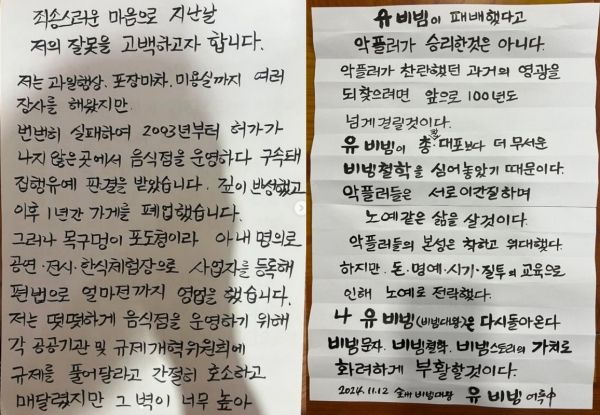 죄송스러운 마음으로 지난날
저의 잘못을 고백하고자 합니다.
저는 과일행상. 포장마차. 미용실까지 여러
장사를 해왔지만.
번번히 실패하여 2003년부터 허가가
나지 않은곳에서 음식점을 운영하다 구속돼
집행유예 판결을 받았습니다. 깊이 반성했고
이후 1년간 가게를 폐업했습니다.
그러나 목구멍이 포도청이라 아내 명의로
공연·전시·한식체험장으로 사업자를 등록해
편법으로 얼마전까지 영업을 했습니다.
저는 떳떳하게 음식점을 운영하기 위해
각 공공기관 및 규제개혁위원회에
규제를 풀어달라고 간절히 호소하고
매달렸지만 그 벽이 너무 높아
유비빔이 패배했다고
악플러가 승리한것은 아니다.
악플러가 찬란했던 과거의 영광을
되찾으려면 앞으로 100년도
넘게 걸릴것이다.
유비빔이 총칼 대포보다 더 무서운
비빔철학을 심어놓았기 때문이다.
악플러들은 서로이간질하며
노예같은 삶을 살것이다.
악플러들의 본성은 착하고 위대했다.
하지만. 돈·명예·시기·질투의 교육으로
인해 노예로 전락했다.
나 유비빔(비빔대왕)은 다시돌아온다
비빔문자. 비빔철학. 비빔스토리의 가치로
화려하게 부활할것이다.
2024.11.12 비빔대왕 유비빔